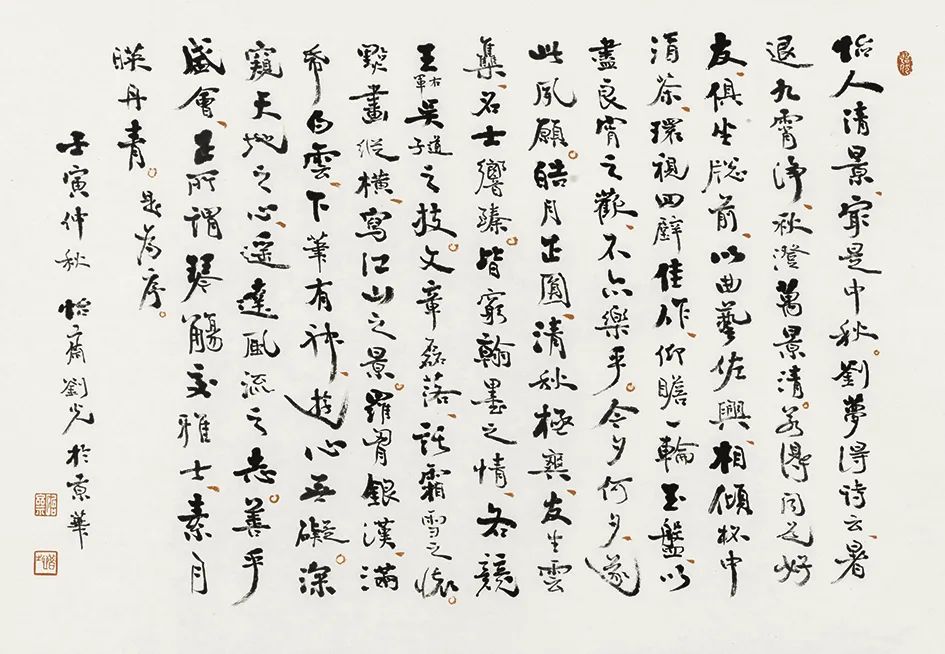 怡人清景、最是中秋。劉夢得詩云、暑
退九霄淨、秋澄萬景清。若得同道好
友、俱坐牕前、以曲藝佐興、相傾杯中
清茶、環視四壁佳作、仰瞻一輪玉盤、以
盡良宵之歡、不亦樂乎。今夕何夕、遂
此夙願。皓月正圓、清秋極爽、友生雲
集、名士響臻。皆窮翰墨之情、各競
王右軍吳道子之技。文章磊落、話霜雪之懷。
點畫縱橫、寫江山之景。羅胷銀漢、滿
白雲、下筆有神、遊心無礙。深
窺天地之心、遥達風流之志。善乎
盛會、正所謂琴觴交雅士、素月
暎丹青。是為序。
壬寅仲秋 怡齋劉光於京華